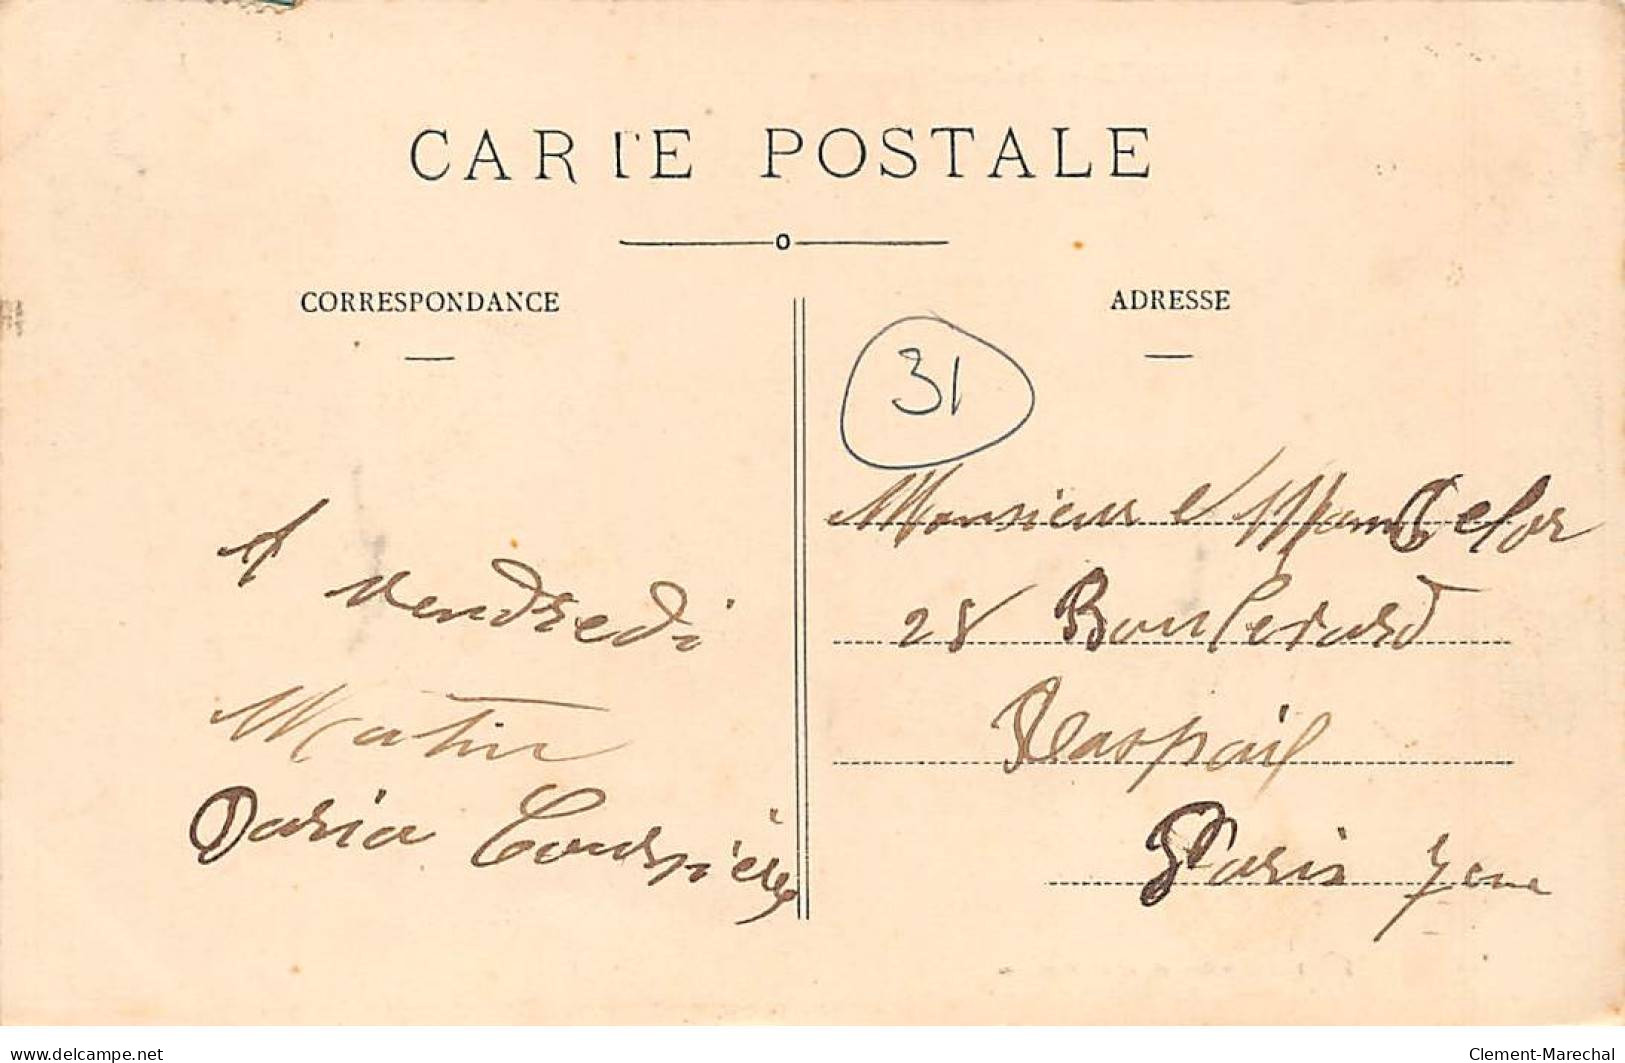 CARTE POSTALE
CORRESPONDANCE
ADRESSE
31
A vendredi
Matin
Daria
Monsieur
28 Boulevard
Raspail
Paris 7eme
delcampe.net
Clement-Marechal